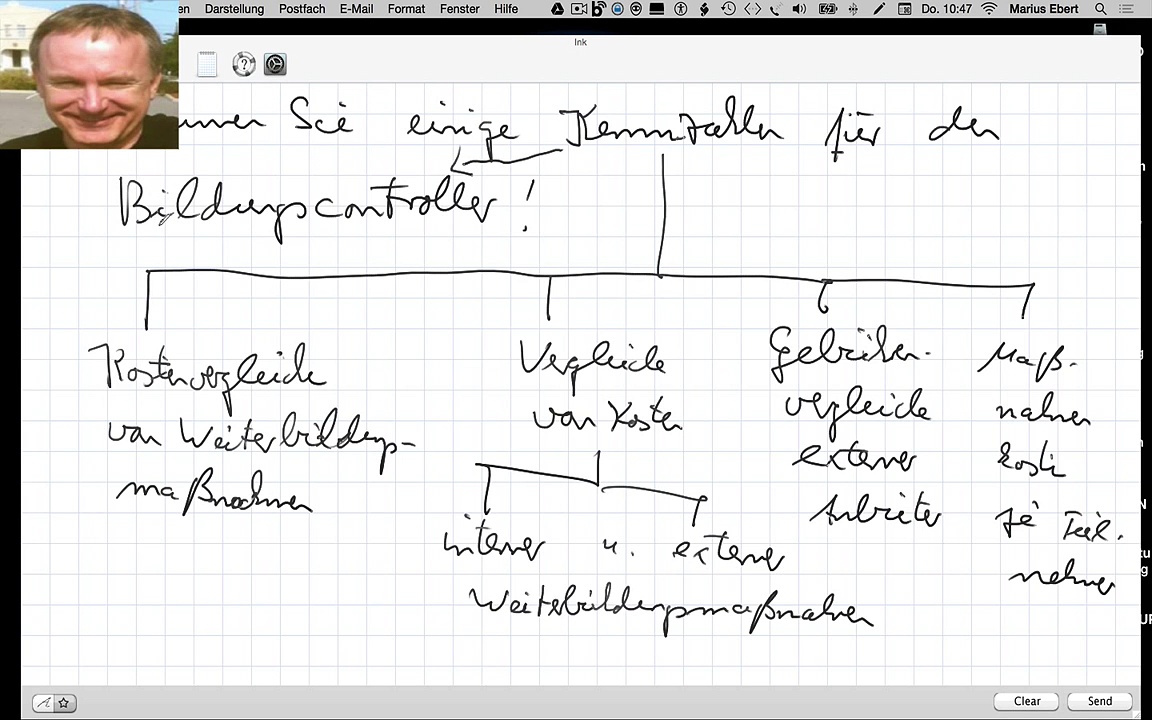 en Darstellung Postfach E-Mail Format Fenster Hilfe Do. 10:47 Marius Ebert
Ink
Sie einige Kennzahlen für den
Bildungscontroller!
Kostenvergleiche
von Weiterbildungs-
maßnahmen
Vergleiche
von Kosten
interner u. externer
Weiterbildungsmaßnahmen
Gebühren-
vergleiche
externer
Anbieter
Maß-
nahmen
kosten
je Teil-
nehmer
Clear Send